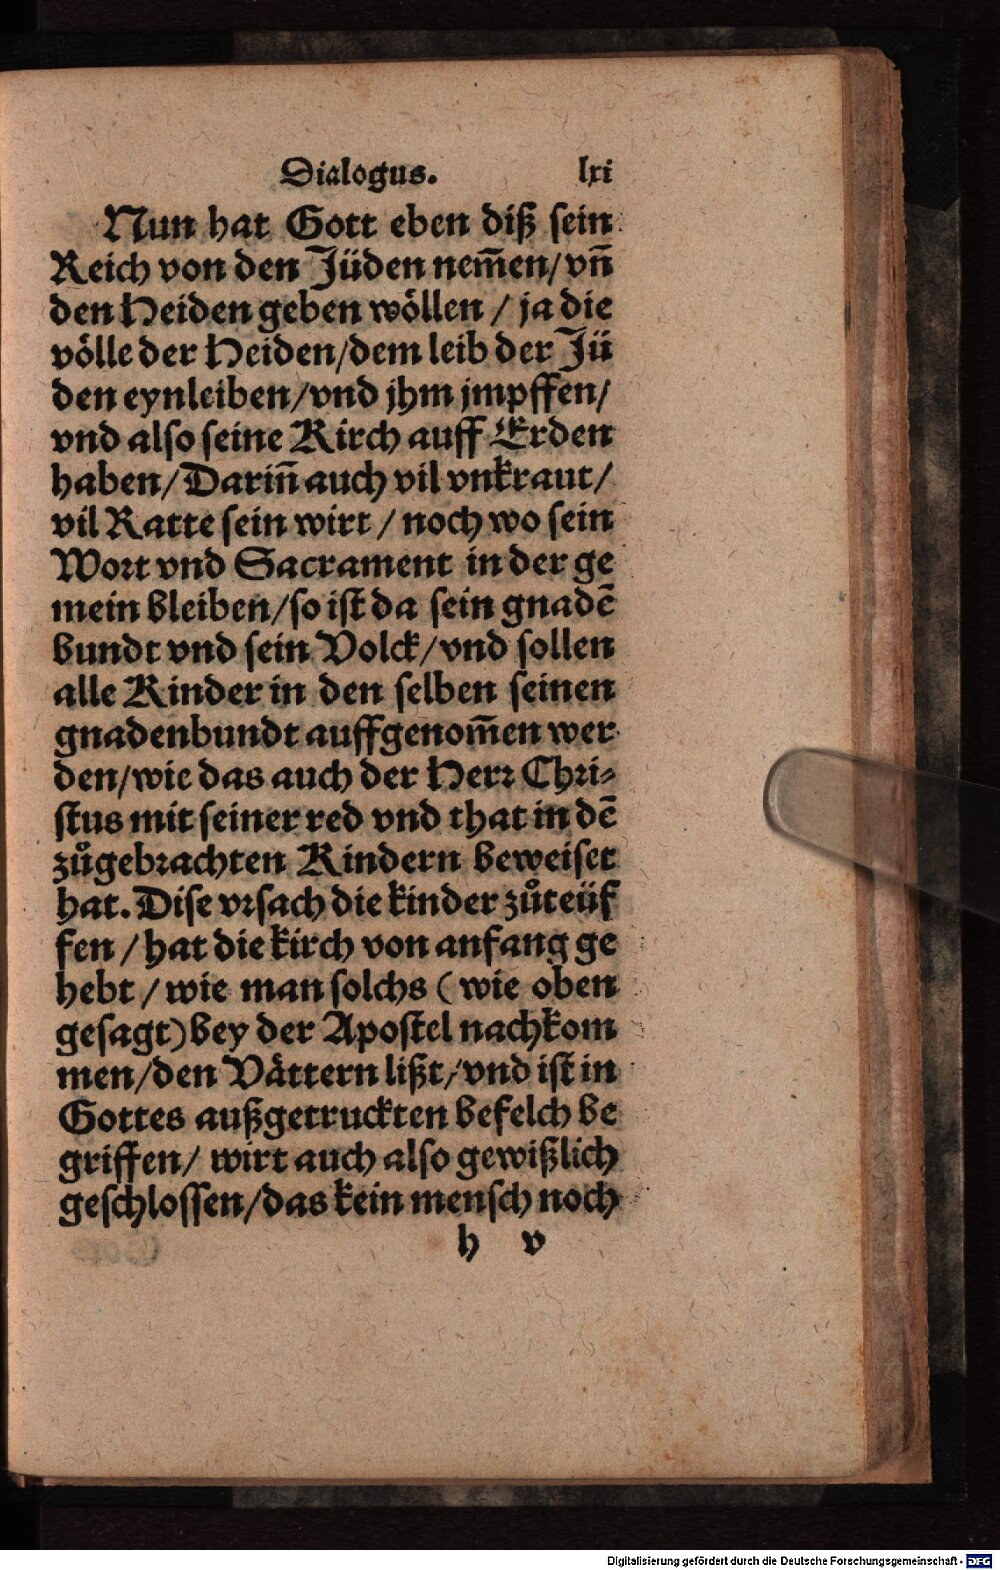 Dialogus. lxi
Nun hat Gott eben diß sein
Reich von den Jüden nem̃en/vñ
den Heiden geben wöllen / ja die
völle der Heiden/dem leib der Jü
den eynleiben/vnd jhm jmpffen/
vnd also seine Kirch auff Erden
haben/Dariñ auch vil vnkraut/
vil Ratte sein wirt / noch wo sein
Wort vnd Sacrament in der ge
mein bleiben/so ist da sein gnadē
bundt vnd sein Volck/vnd sollen
alle Kinder in den selben seinen
gnadenbundt auffgenom̃en wer
den/wie das auch der Herr Chri-
stus mit seiner red vnd that in dē
zůgebrachten Kindern beweiset
hat. Dise vrsach die kinder zůteüf
fen / hat die kirch von anfang ge
hebt / wie man solchs ( wie oben
gesagt) bey der Apostel nachkom
men/den Vättern lißt/vnd ist in
Gottes außgetruckten befelch be
griffen/ wirt auch also gewißlich
geschlossen/das kein mensch noch
h v
Digitalisierung gefördert durch die Deutsche Forschungsgemeinschaft - DFG